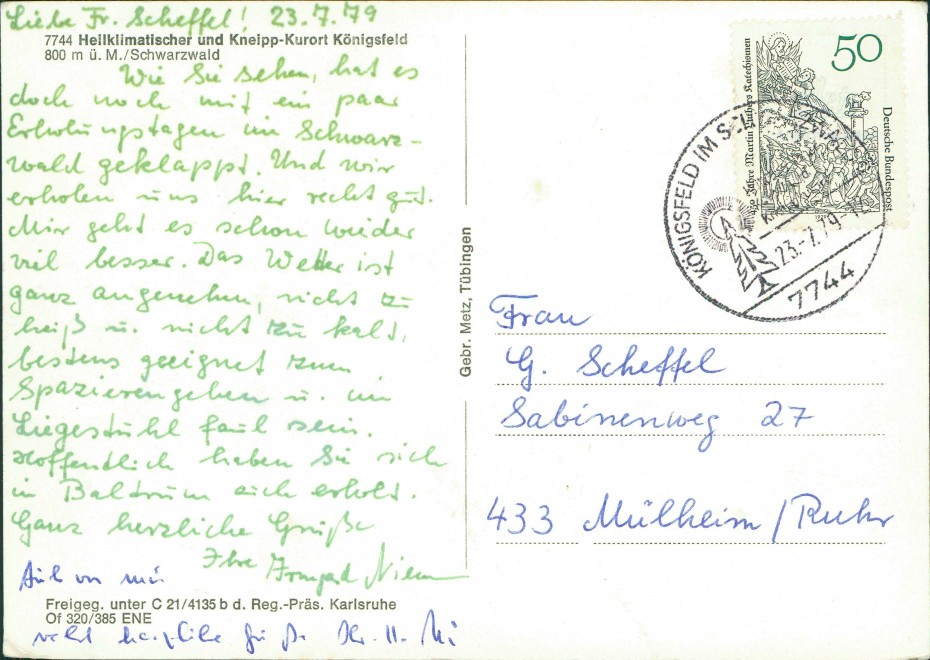 Liebe Fr. Scheffel! 23.7.79
7744 Heilklimatischer und Kneipp-Kurort Königsfeld
800 m ü. M./Schwarzwald
Wie Sie sehen, hat es
doch noch mit ein paar
Erholungstagen im Schwarz-
wald geklappt. Und wir
erholen uns hier recht gut.
Mir geht es schon wieder
viel besser. Das Wetter ist
ganz angenehm, nicht zu
heiß u. nicht zu kalt,
bestens geeignet zum
Spazierengehen u. im
Liegestuhl faul sein.
Hoffentlich haben Sie sich
in Baltrum auch erholt.
Ganz herzliche Grüße
Ihre Irmgard
Auch von mir
Freigeg. unter C 21/4135 b d. Reg.-Präs. Karlsruhe
Of 320/385 ENE
recht herzliche Grüße
Gebr. Metz, Tübingen
50
Deutsche Bundespost
450 Jahre Martin Luthers Katechismen
KÖNIGSFELD IM SCHWARZWALD
23.-7.79
7744
Frau
G. Scheffel
Sabinenweg 27
433 Mülheim/Ruhr